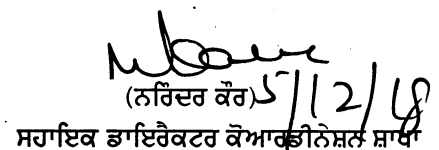 (ਨਰਿੰਦਰ ਕੌਰ) 5/12/18
ਸਹਾਇਕ ਡਾਇਰੈਕਟਰ ਕੋਆਰਡੀਨੇਸ਼ਨ ਸ਼ਾਖਾ